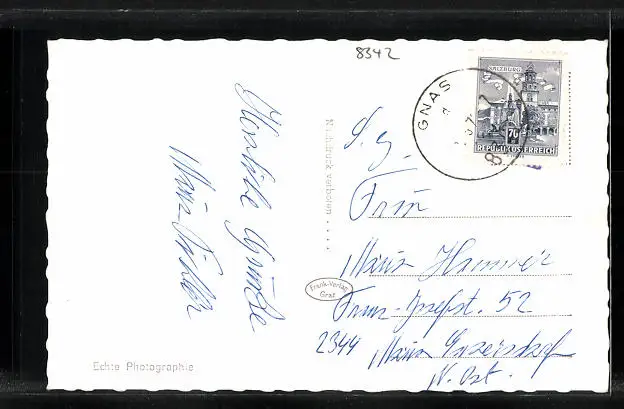 8342
Herzliche Grüße
Maria
Nachdruck verboten . . . .
GNAS
SALZBURG
70
REPUBLIK ÖSTERREICH
S. g.
Frau
Maria Hammer
Frank-Verlag
Graz
Franz-Josefst. 52
2344 Maria Enzersdorf
N. Öst.
Echte Photographie